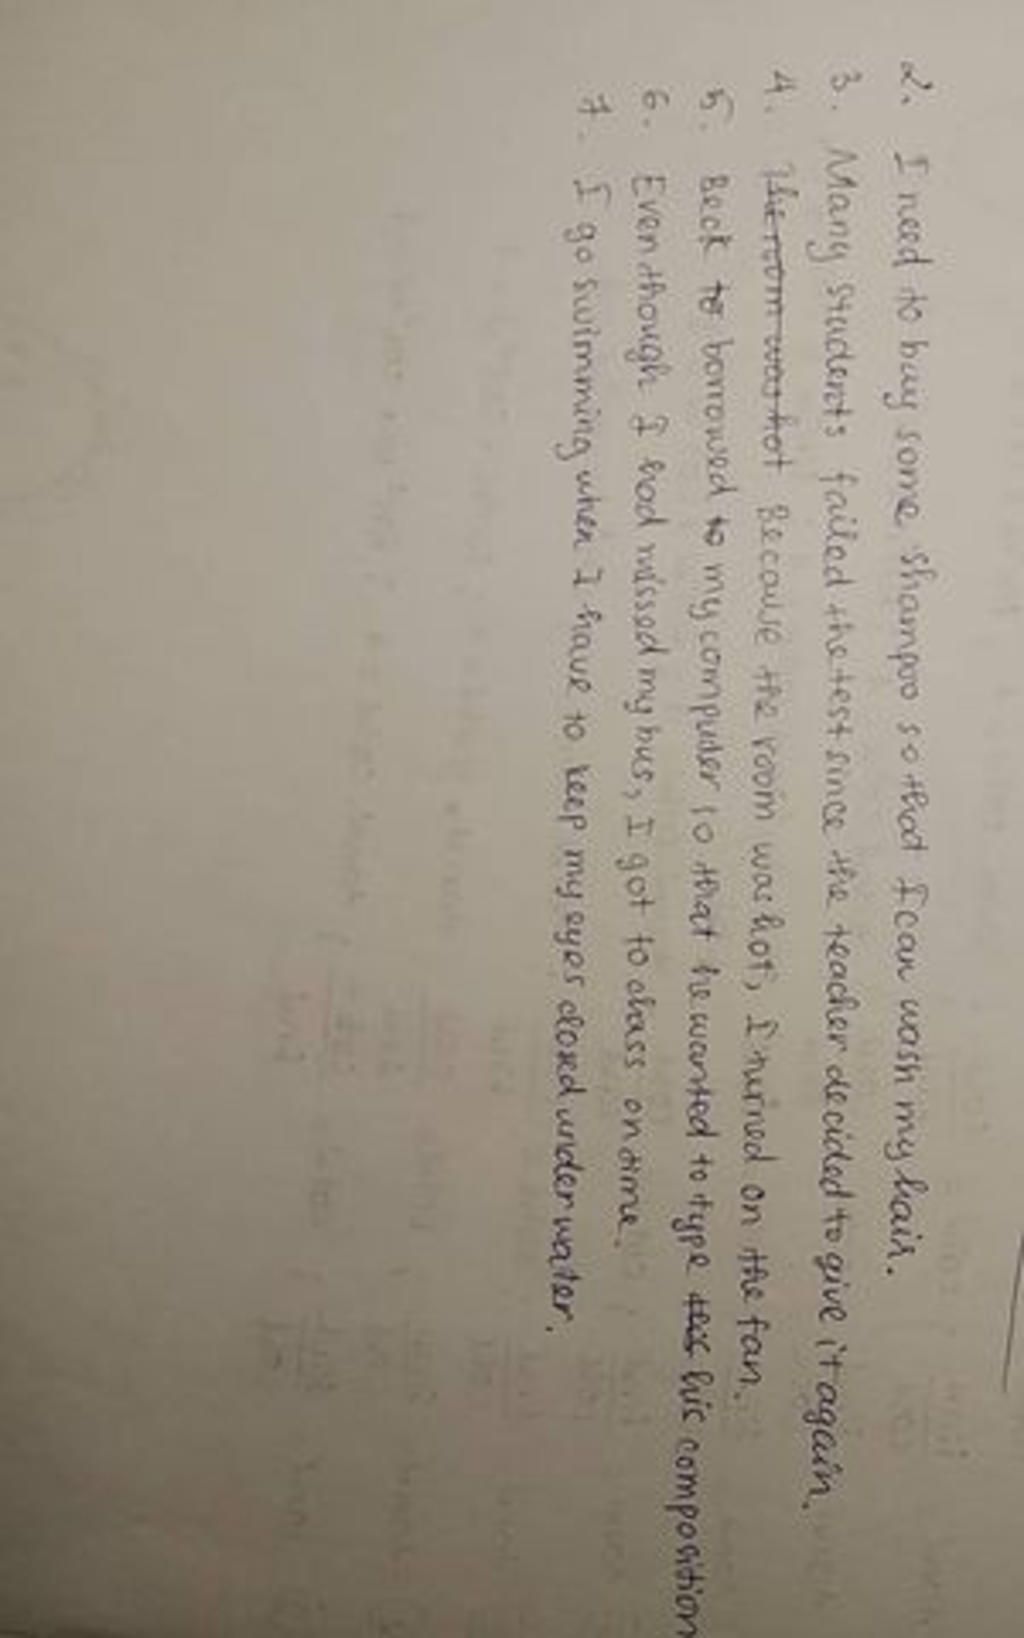 2. I need to buy some shampoo so that I can wash my hair.
3. Many students failed the test since the teacher decided to give it again.
4. The room was hot Because the room was hot, I turned on the fan.
5. Beck to borrowed to my computer so that he wanted to type his composition
6. Even though I had missed my bus, I got to class on time.
7. I go swimming when I have to keep my eyes closed under water.